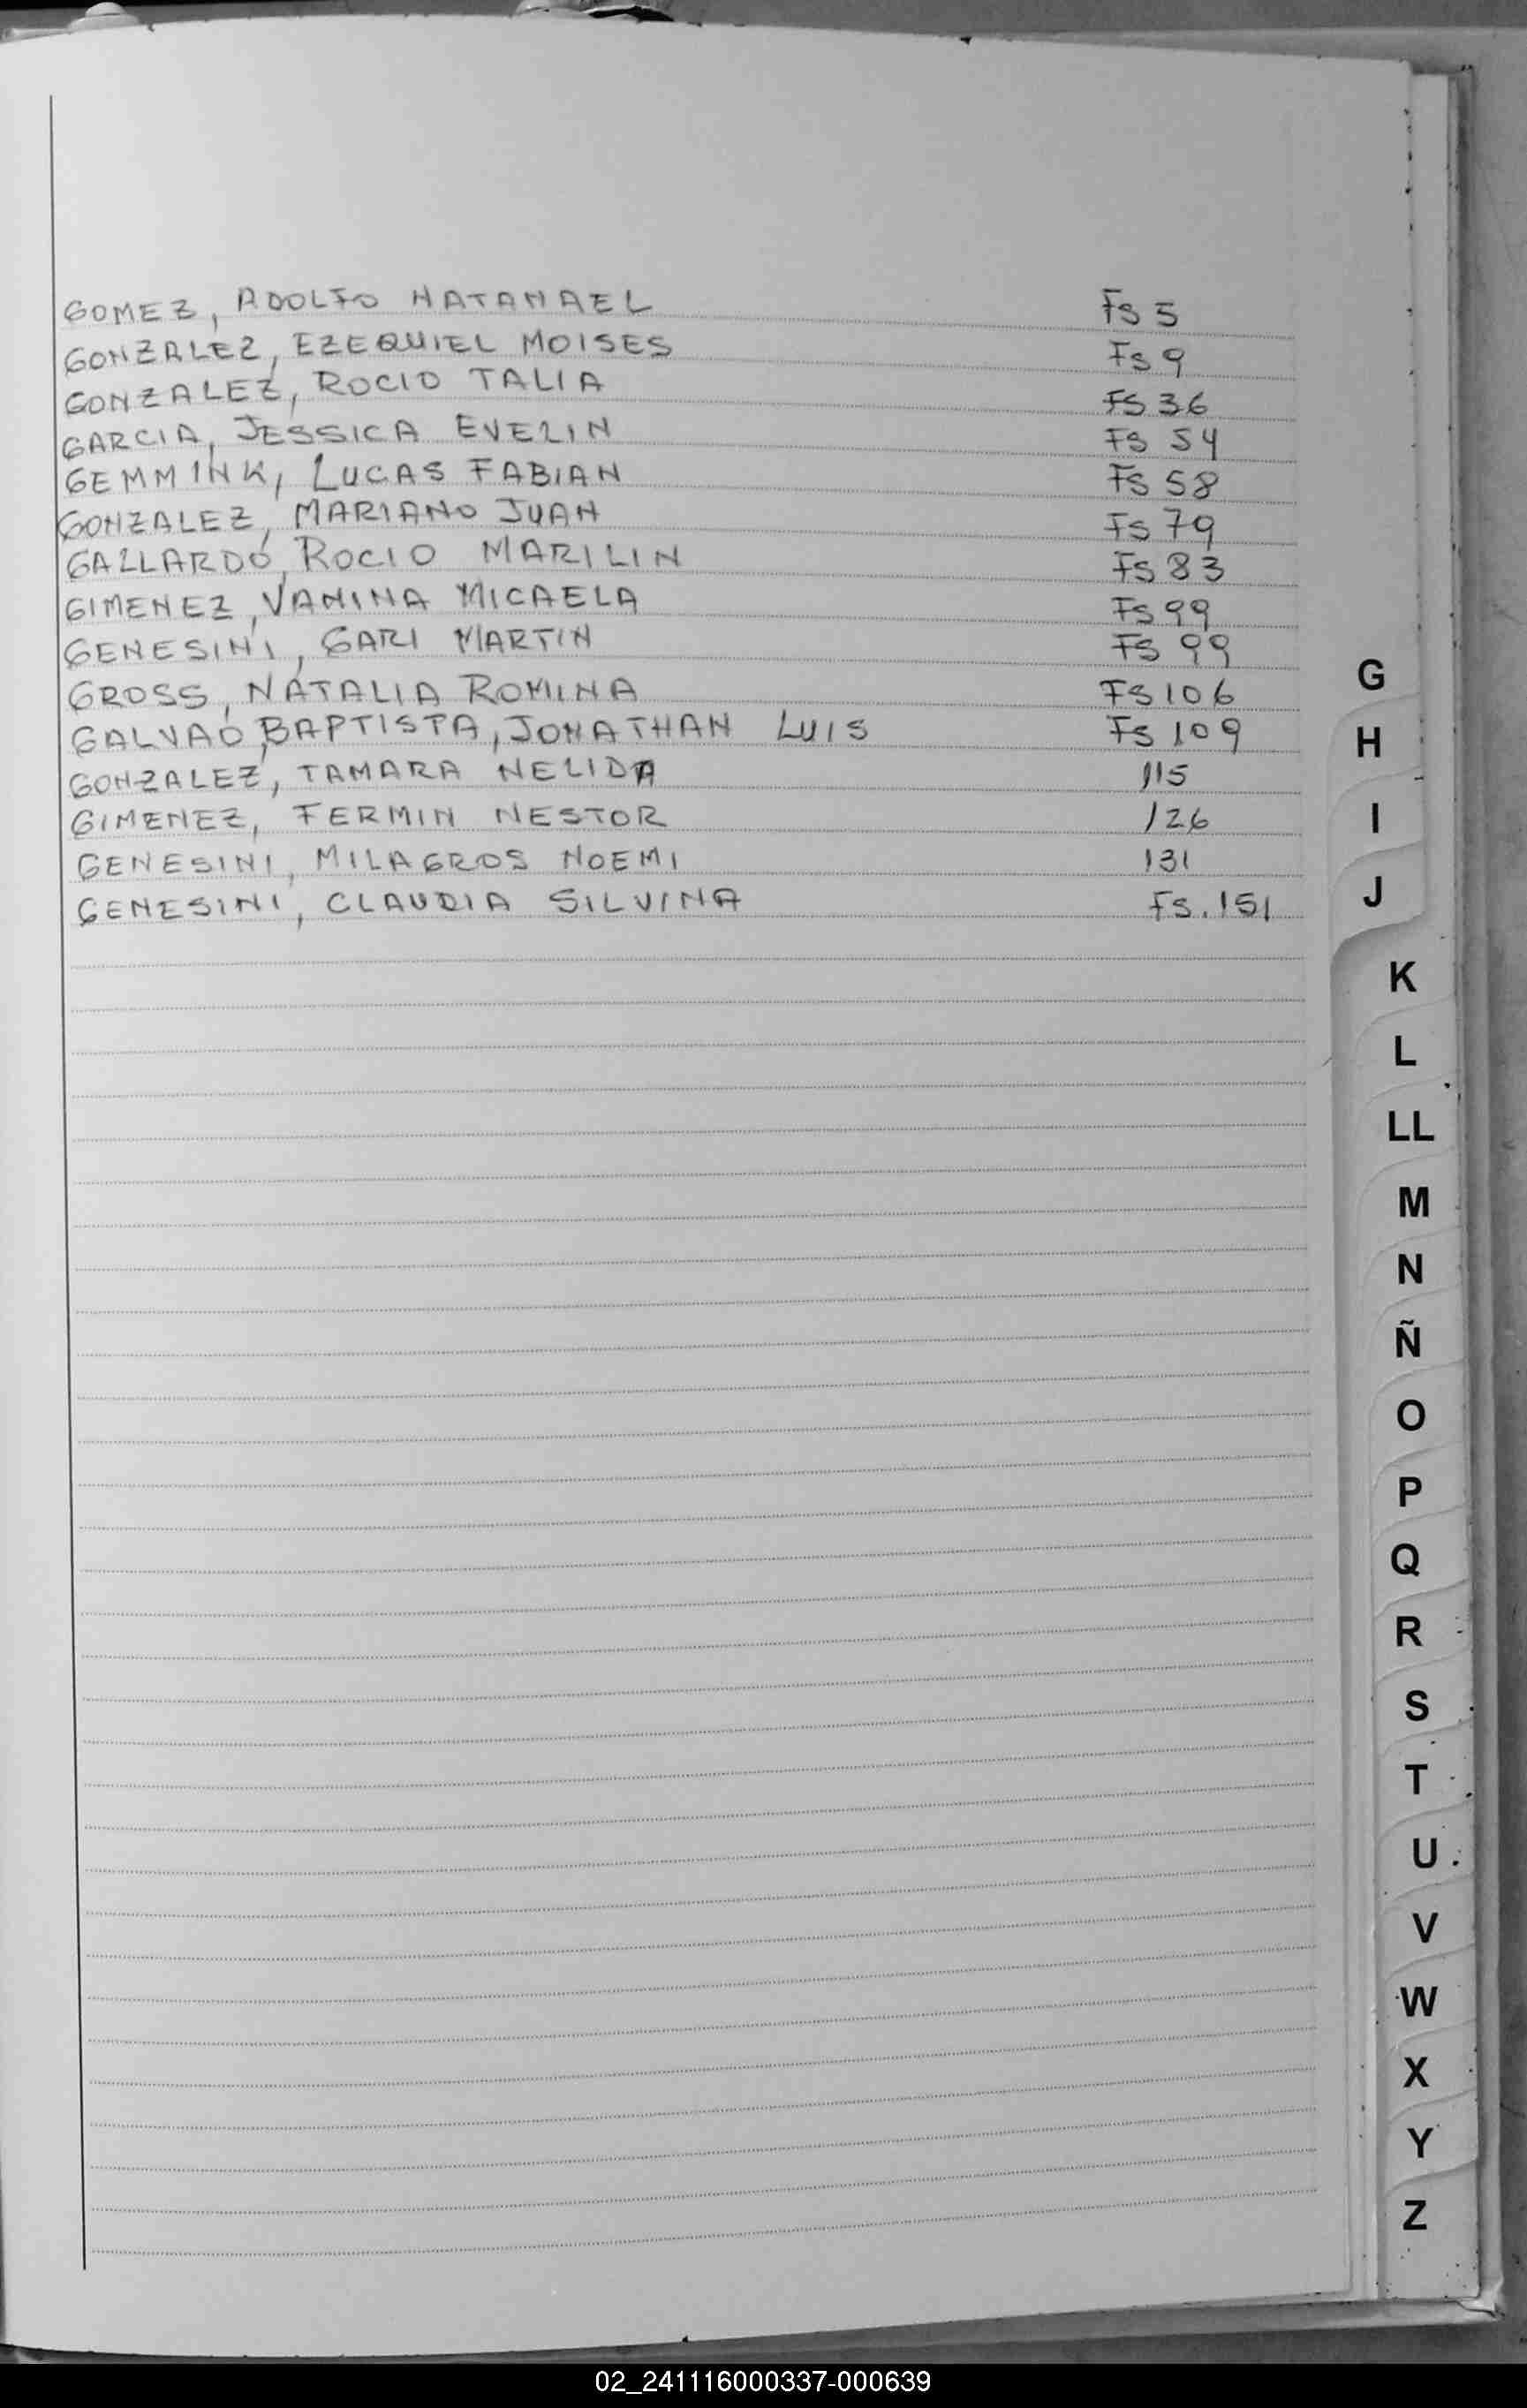 GOMEZ, ADOLFO NATANAEL Fs 5
GONZALEZ, EZEQUIEL MOISES Fs 9
GONZALEZ, ROCIO TALIA FS 36
GARCIA, JESSICA EVELIN Fs 54
GEMMINK, LUCAS FABIAN Fs 58
GONZALEZ, MARIANO JUAN Fs 79
GALLARDO, ROCIO MARILIN Fs 83
GIMENEZ, VANINA MICAELA Fs 99
GENESINI, GARI MARTIN Fs 99
GROSS, NATALIA ROMINA FS 106
GALVAO BAPTISTA, JONATHAN LUIS Fs 109
GONZALEZ, TAMARA NELIDA 115
GIMENEZ, FERMIN NESTOR 126
GENESINI, MILAGROS NOEMI 131
GENESINI, CLAUDIA SILVINA Fs. 151
G
H
I
J
K
L
LL
M
N
Ñ
O
P
Q
R
S
T
U
V
W
X
Y
Z
02_241116000337-000639